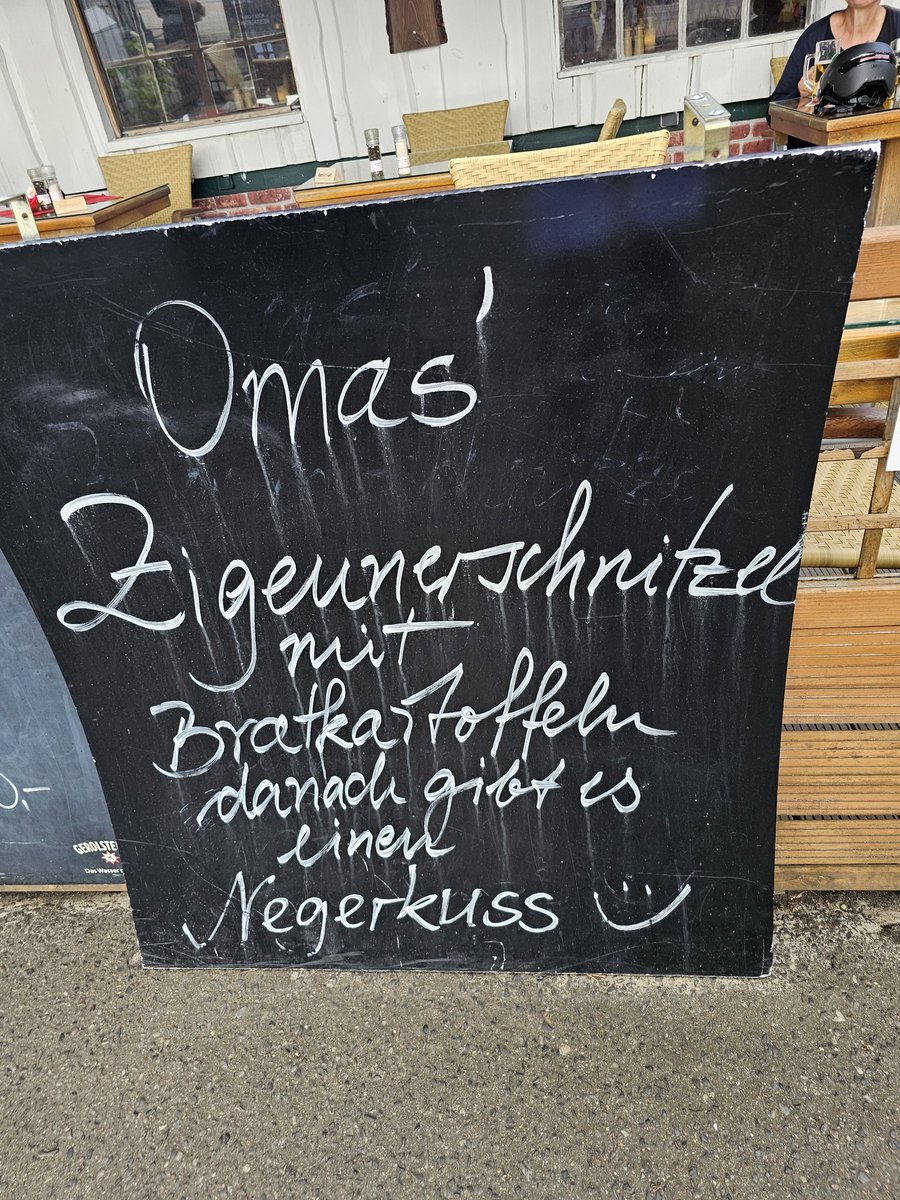 Omas'
Zigeunerschnitzel
mit
Bratkartoffeln
danach gibt es
einen
Negerkuss :)
0,-
GEROLSTE
Das Wasser